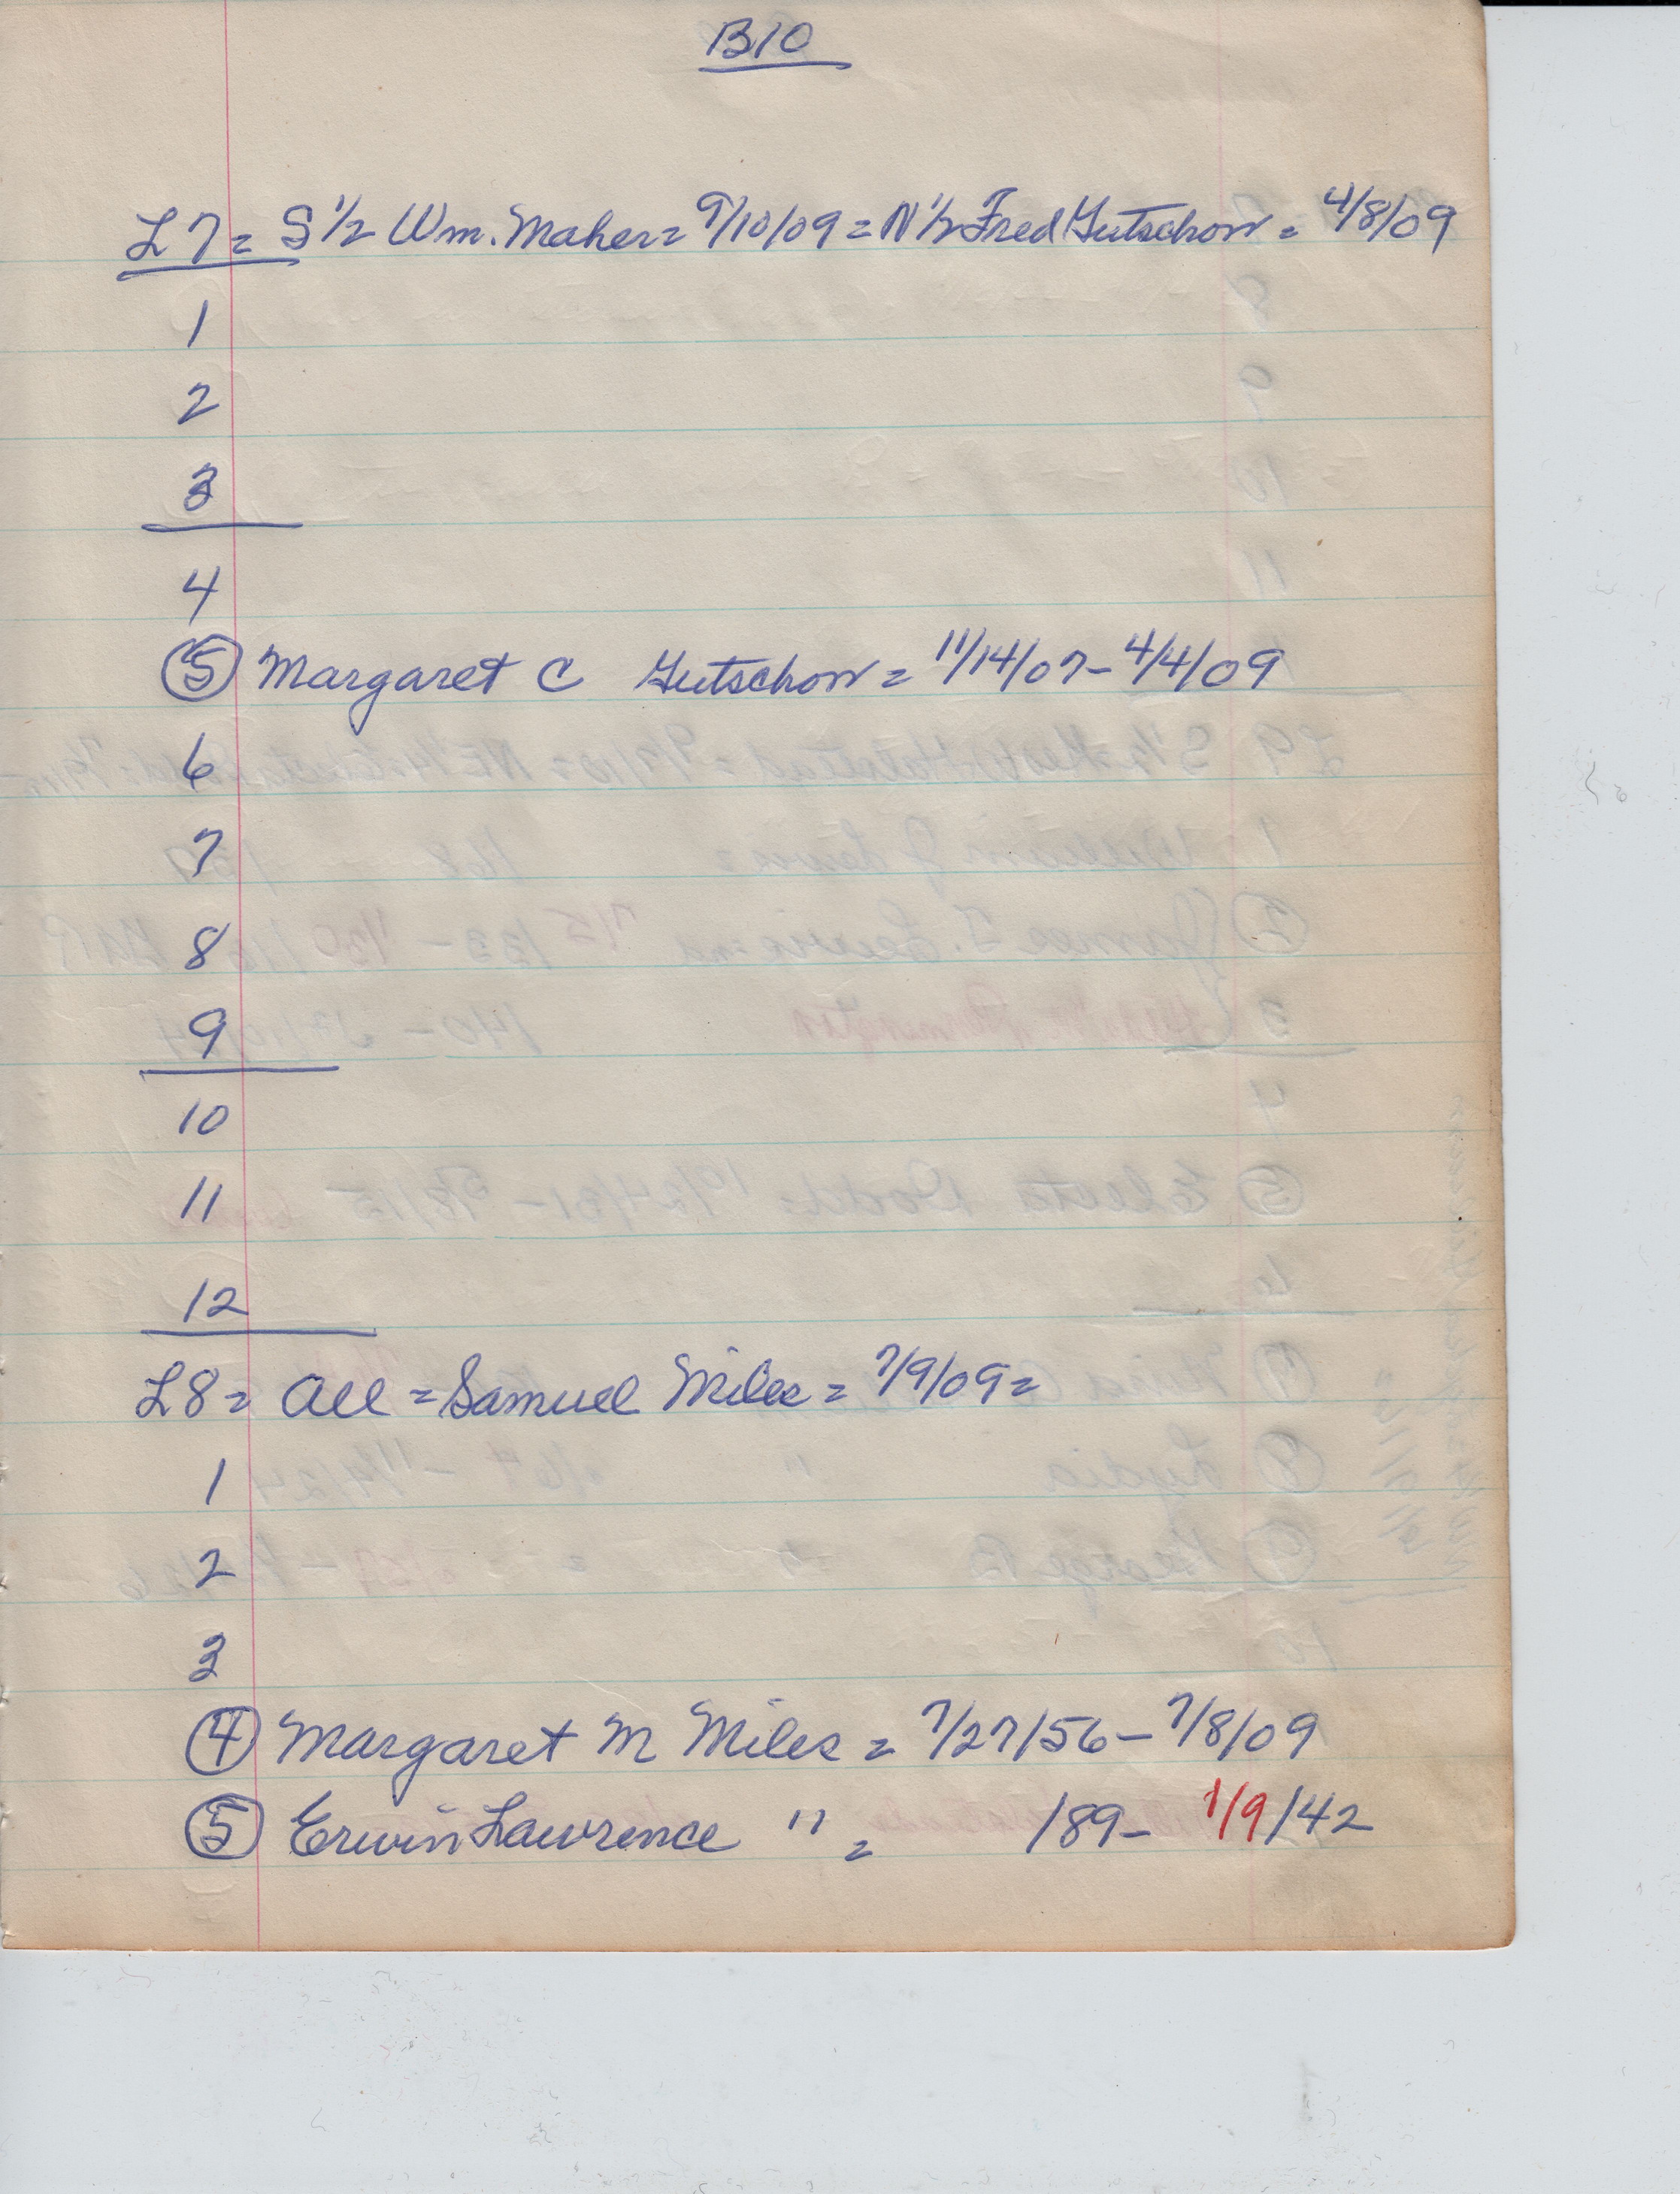 B10
L7 = S 1/2 Wm. Maher = 9/10/09 = N 1/2 Fred Gutschow = 4/8/09
1
2
3
4
5 Margaret C Gutschow = 11/14/07 - 4/4/09
6
7
8
9
10
11
12
L8 = All = Samuel Miles = 7/9/09 =
1
2
3
4 Margaret M Miles = 7/27/56 - 7/8/09
5 Erwin Lawrence " = /89 - 1/9/42